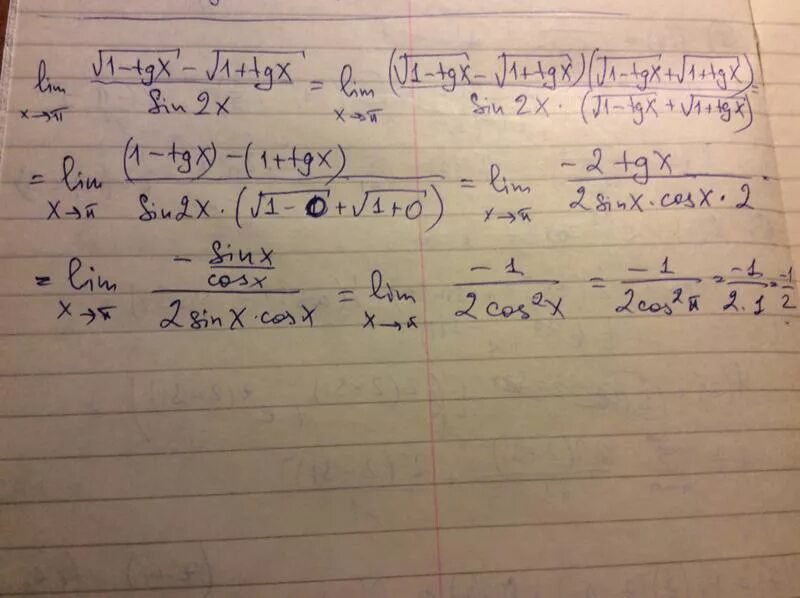 lim x→π (√(1-tgx) - √(1+tgx)) / (Sin 2x) = lim x→π ((√(1-tgx) - √(1+tgx))(√(1-tgx) + √(1+tgx))) / (Sin 2x · (√(1-tgx) + √(1+tgx))) =
= lim x→π ((1-tgx) - (1+tgx)) / (Sin2x · (√(1-0) + √(1+0))) = lim x→π (-2 tgx) / (2 sinx · cosx · 2)
= lim x→π (- sinx/cosx) / (2 sinx · cosx) = lim x→π (-1) / (2 cos²x) = (-1) / (2cos²π) = (-1) / (2·1) = -1/2